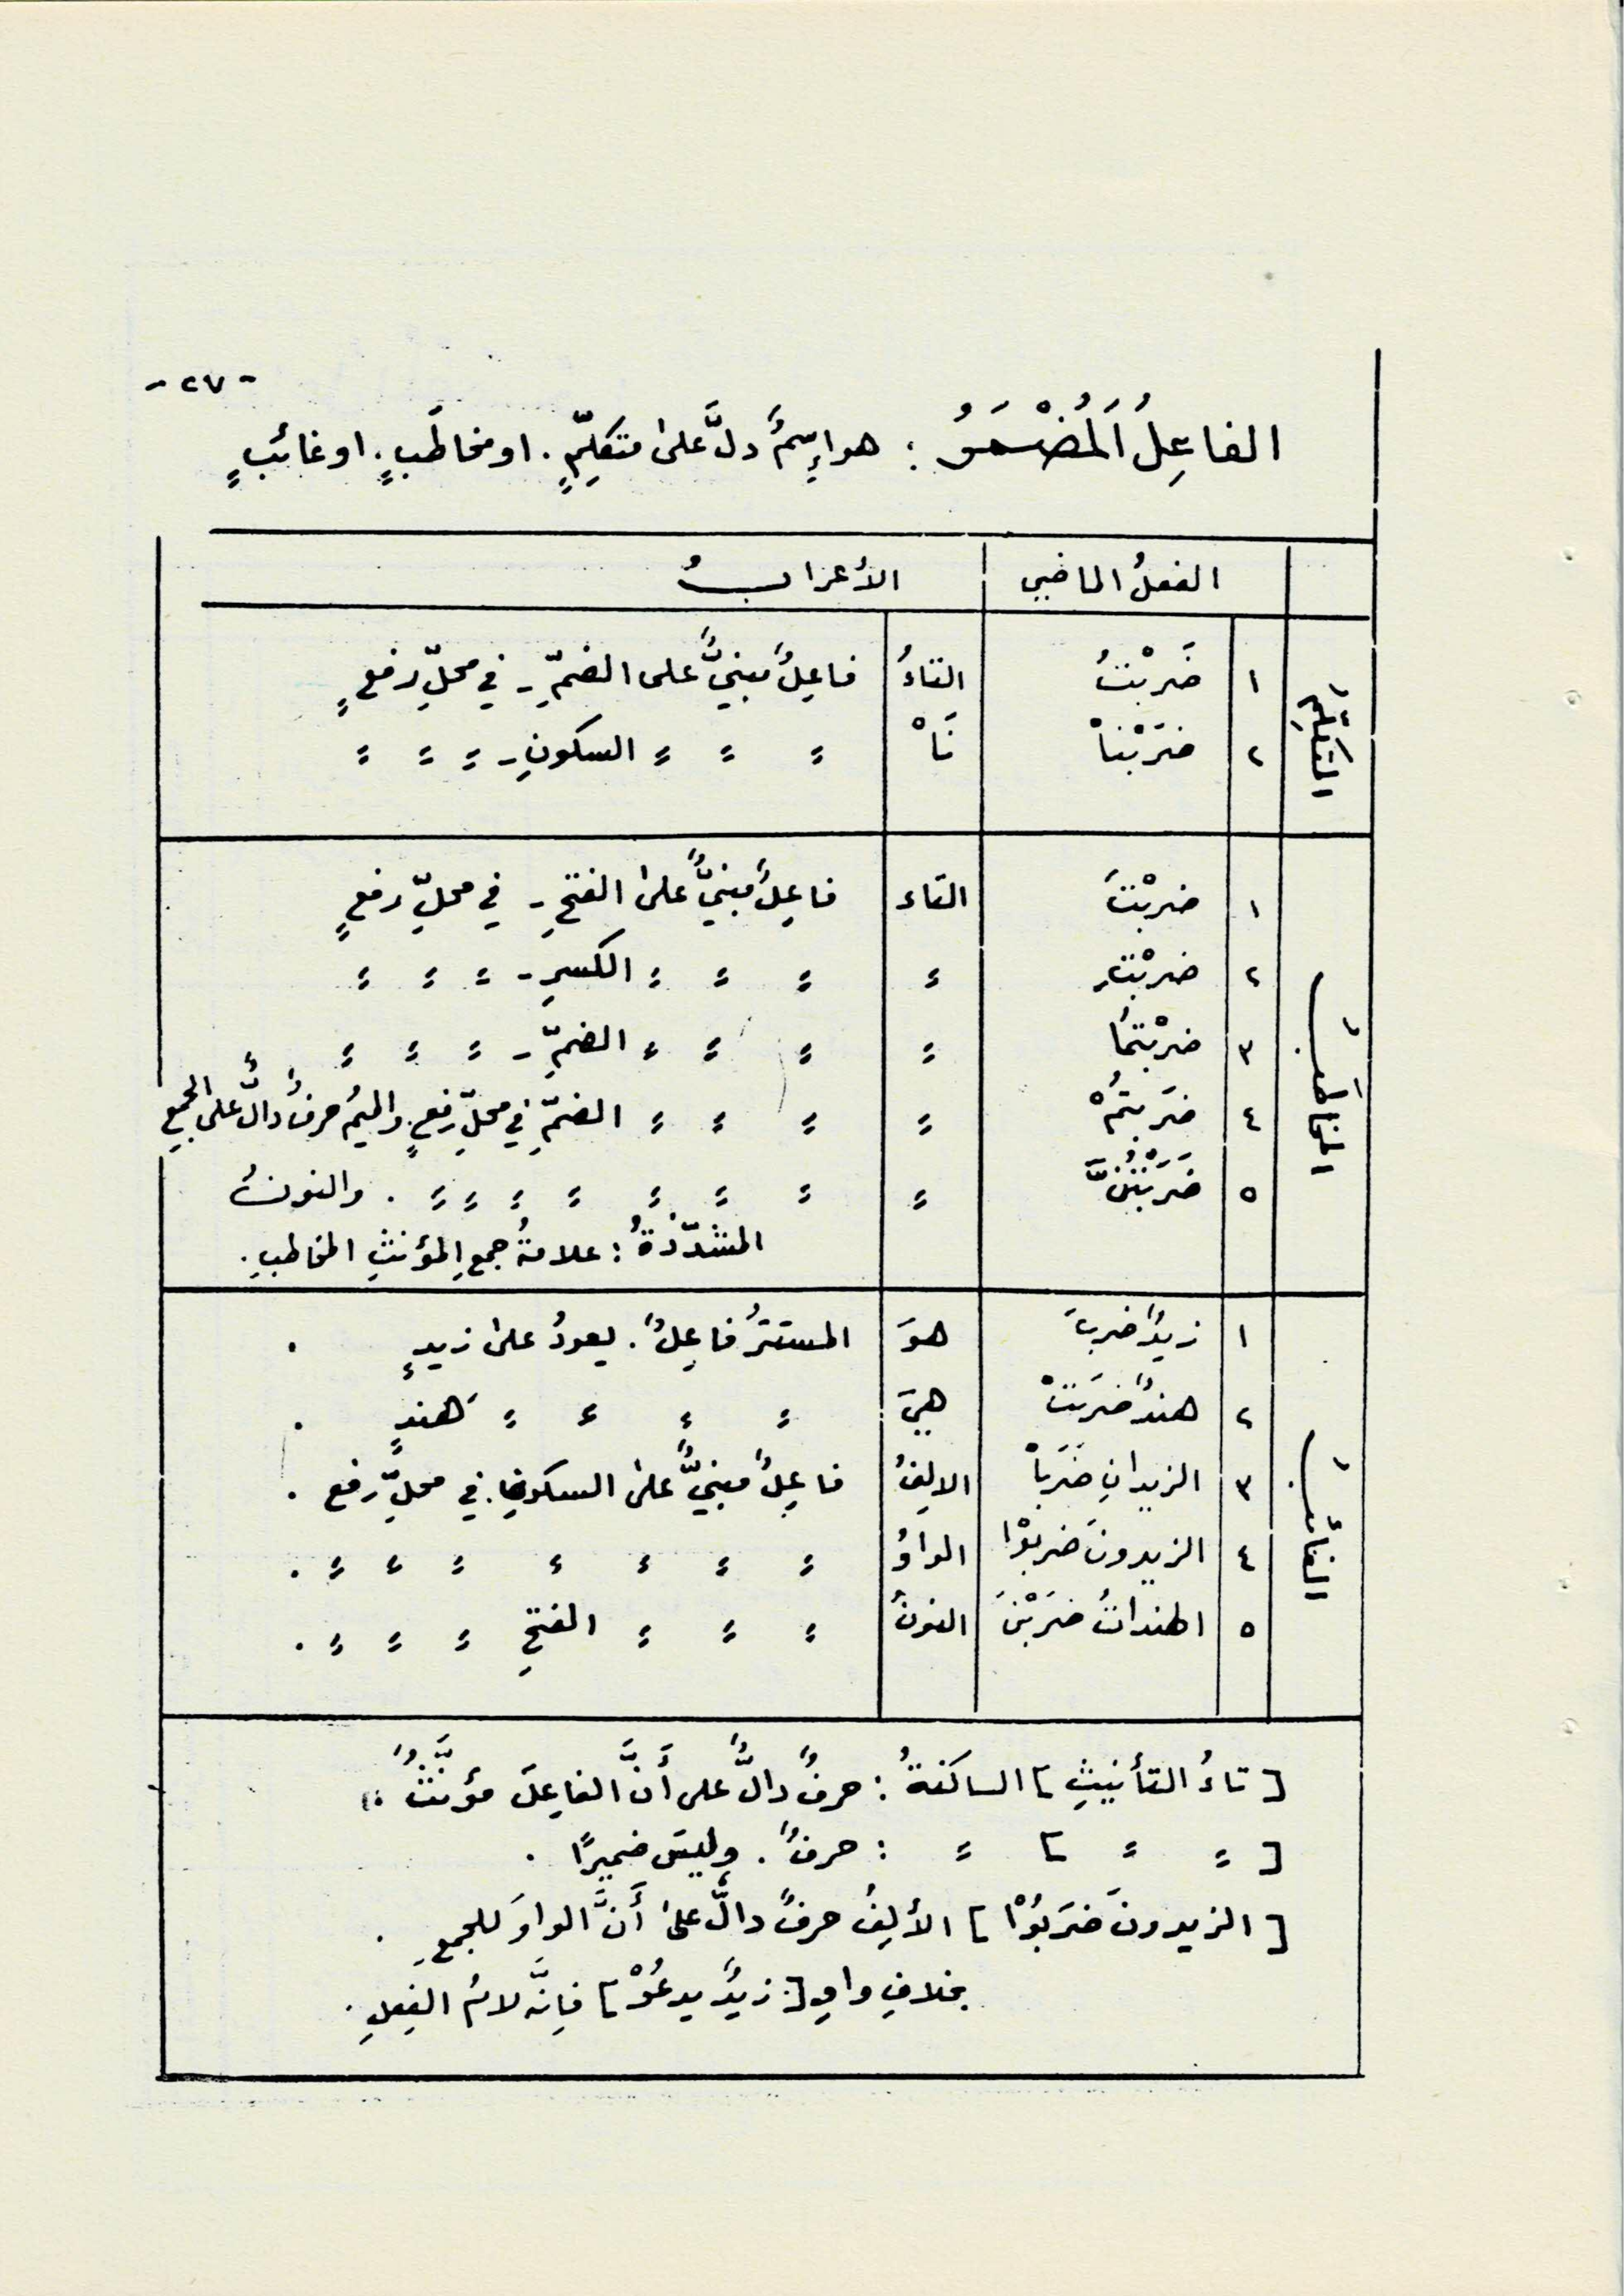 - ٢٧ -
الفاعِلُ اَلمُضْمَرُ : هو اِسمٌ دلَّ علىٰ متكلِّمٍ . او مخاطَبٍ . او غائبٍ
الفعلُ الماضي الأعرابُ
المتكلِّمُ
١ ضَرَبْتُ التاءُ فاعِلٌ مبنيٌّ على الضمِّ - في محلِّ رفعٍ
٢ ضَرَبْناْ نَاْ = = = السكونِ - = = =
المخاطَبُ
١ ضربْتَ التاء فاعِلٌ مبنيٌّ علىٰ الفتحِ - في محلِّ رفعٍ
٢ ضربْتِ = = = = الكسرِ - = = =
٣ ضربْتُما = = = = الضمِّ - = = =
٤ ضرَبتُمْ = = = = الضمِّ في محلِّ رفعٍ . والميمُ حرفٌ دالٌّ على الجمعِ
٥ ضَرَبْتُنَّ = = = = = = = = = . والنونُ
المشدّدَةُ : علامةُ جمعِ المؤنثِ المخاطبِ .
الغائبُ
١ زيدٌ ضربَ هوَ المستترُ فاعِلٌ . يعودُ علىٰ زيدٍ .
٢ هندٌ ضرَبَتْ هيَ = = = = هندٍ .
٣ الزيدانِ ضَرَباْ الالِفُ فاعِلٌ مبنيٌّ علىٰ السكونِ . في محلِّ رفع .
٤ الزيدونَ ضربوْا الواوُ = = = = = = = .
٥ الهنداتُ ضرَبْنَ النونُ = = = الفتحِ = = = .
[ تاءُ التأنيثِ ] الساكنةُ : حرفٌ دالٌّ على أَنَّ الفاعِلَ مؤنَّثٌ .
[ = = ] = : حرفٌ . وليسَ ضميرًا .
[ الزيدونَ ضرَبُوْا ] الألِفُ حرفٌ دالٌّ علىٰ أَنَّ الواوَ للجمعِ .
بخلافِ واوِ [ زيدٌ يدعُوْ ] فإنَّه لامُ الفِعلِ .